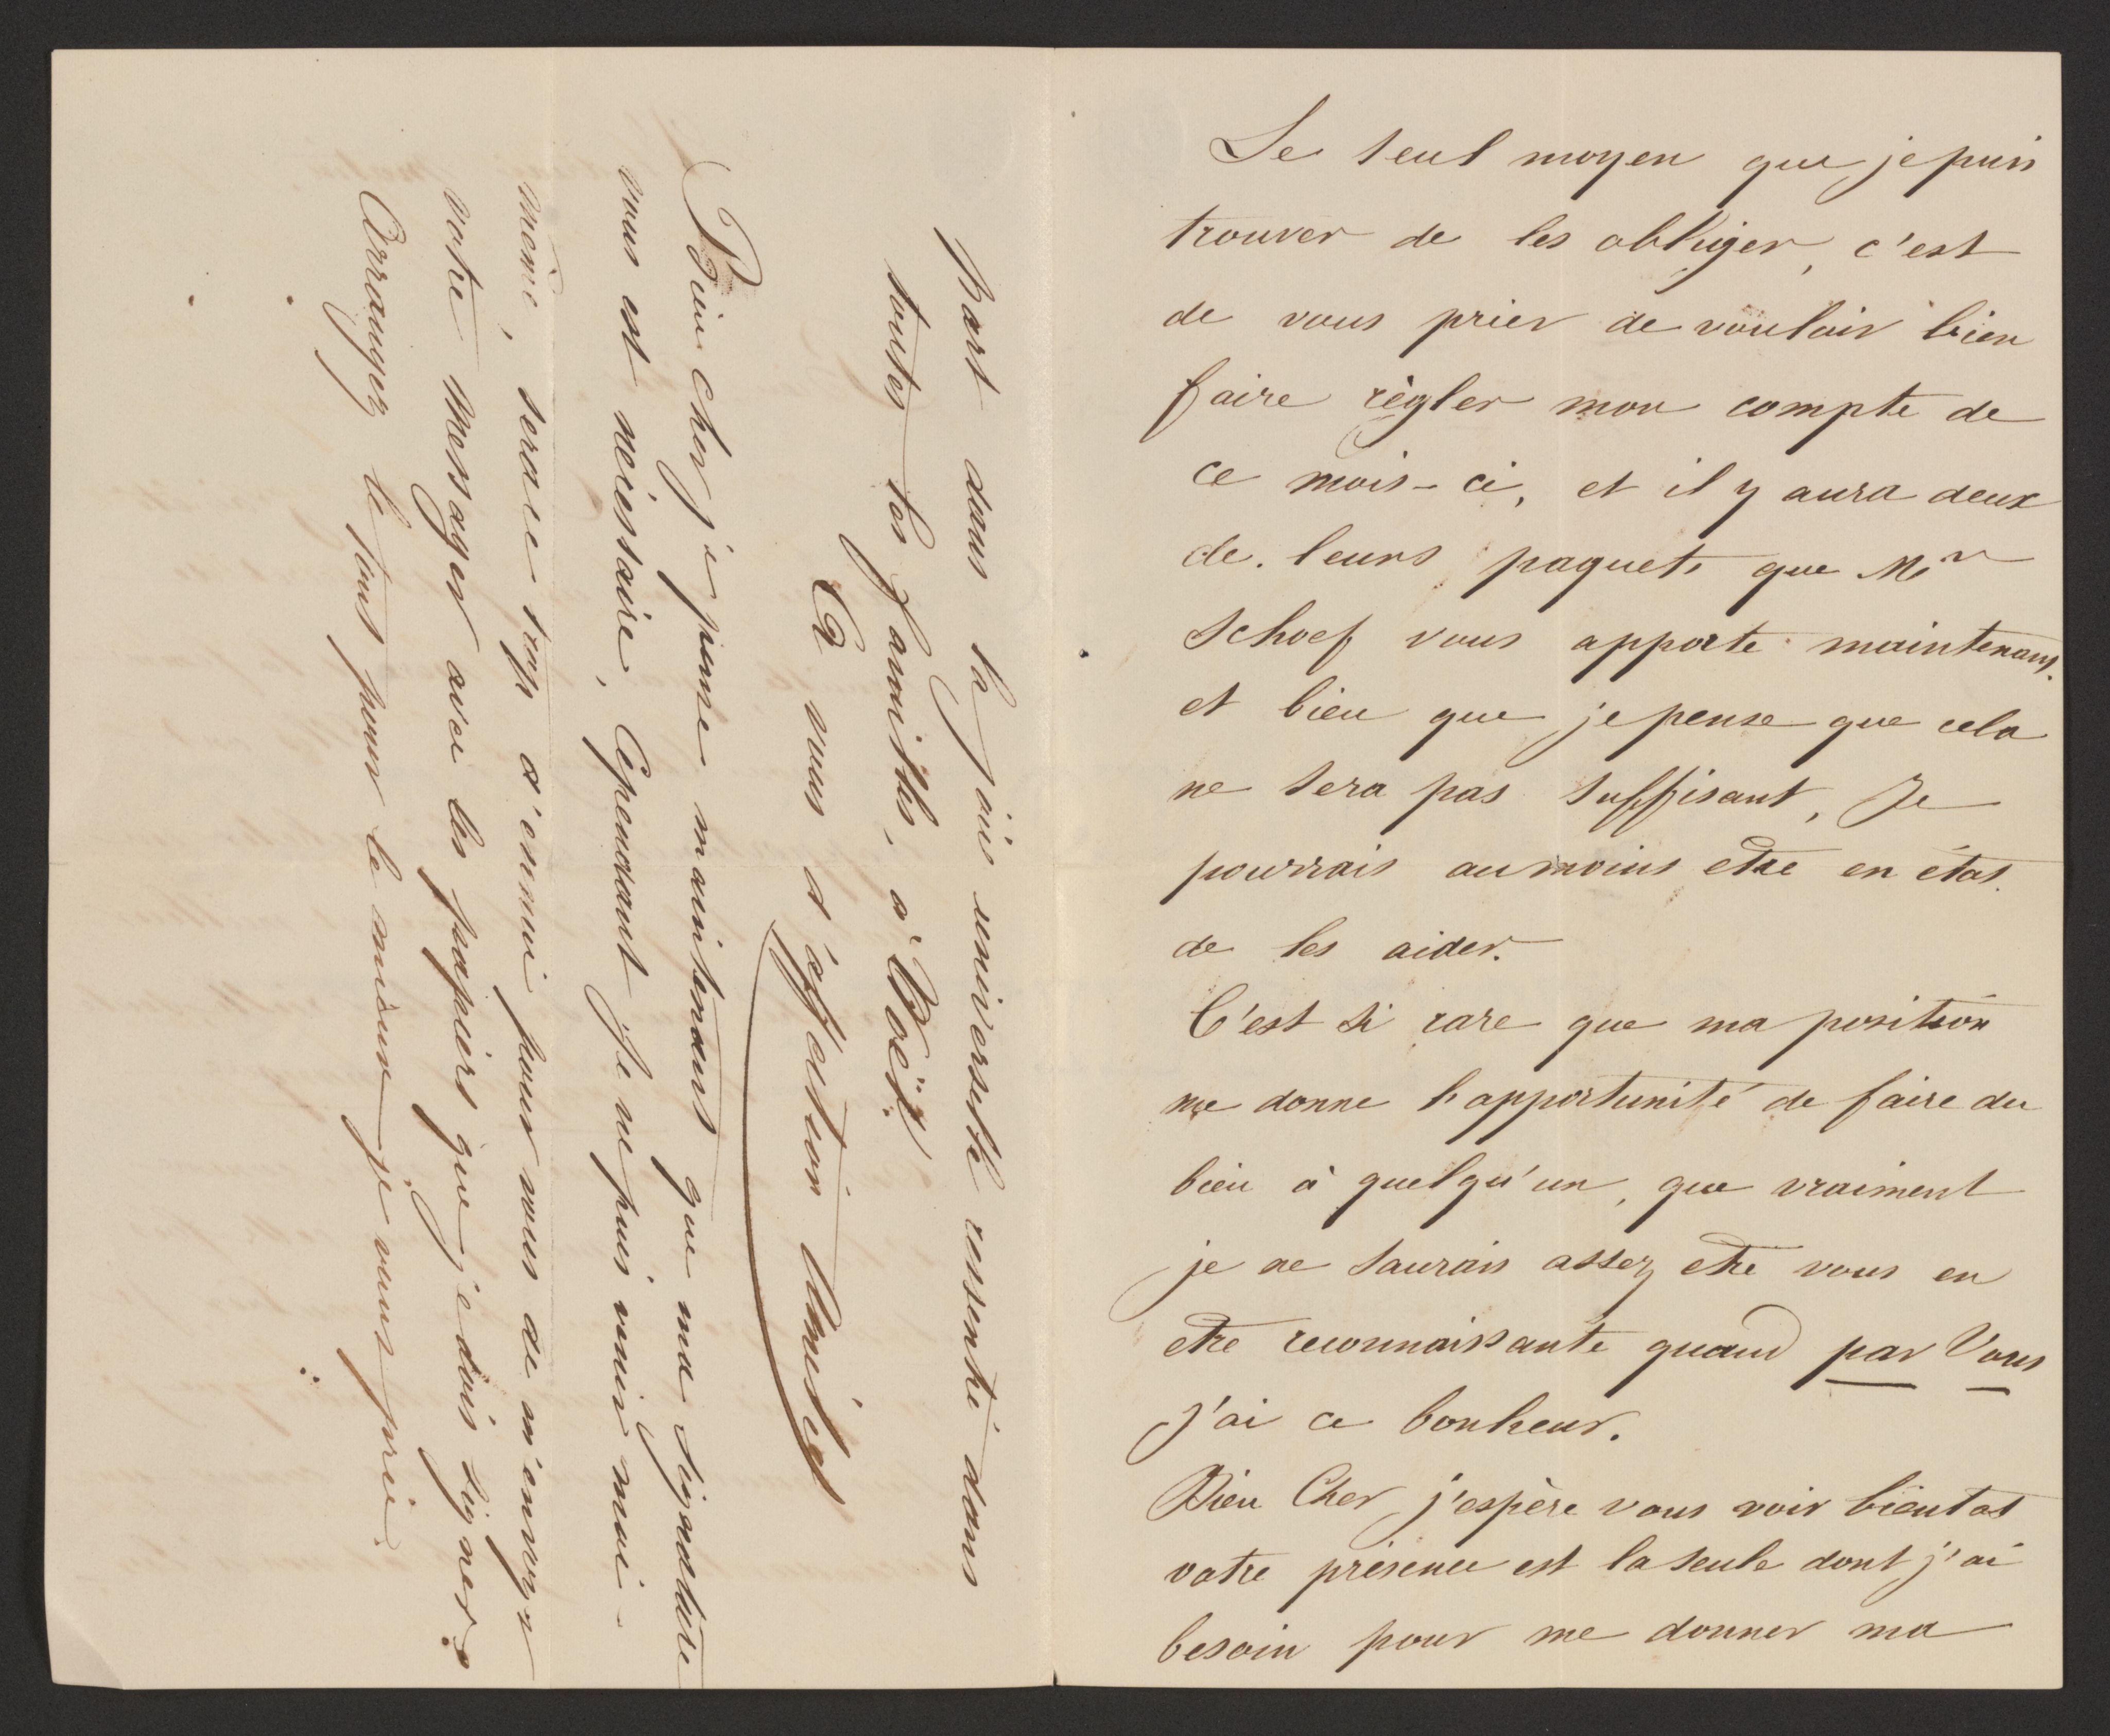 Le seul moyen que je puis
trouver de les obliger, c'est
de vous prier de vouloir bien
faire règler mon compte de
ce mois-ci, et il y aura deux
de leurs paquets que Mr
Schoef vous apporte maintenant.
et bien que je pense que cela
ne sera pas suffisant, Je
pourrais au moins etre en état
de les aider.
C'est si rare que ma position
me donne l'apportunité de faire du
bien à quelqu'un, que vraiment
je ne saurais assez etre vous en
etre reconnaissante quand par Vous
j'ai ce bonheur.
Bien Cher, j'espère vous voir bientot
votre présence est la seule dont j'ai
besoin pour me donner ma
part dans la joie universelle ressentie dans
toutes les familles, à
A vous d'affection
Bien cher je pense maintenant que ma signature
vous est nécessaire, Cependant Je ne puis venir moi-
même, serait-ce trop d'ennui pour vous de m'envoyer
votre Messager avec les papiers que je dois signer?
Arrangez le tous pour le mieux je vous prie.